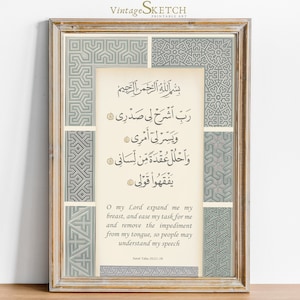 Vintage SKETCH
PRINTABLE ART
بِسْمِ ٱللَّهِ ٱلرَّحْمَٰنِ ٱلرَّحِيمِ
رَبِّ ٱشْرَحْ لِى صَدْرِى
وَيَسِّرْ لِىٓ أَمْرِى
وَٱحْلُلْ عُقْدَةً مِّن لِّسَانِى
يَفْقَهُوا۟ قَوْلِى
O my Lord expand me my
breast, and ease my task for me
and remove the impediment
from my tongue, so people may
understand my speech